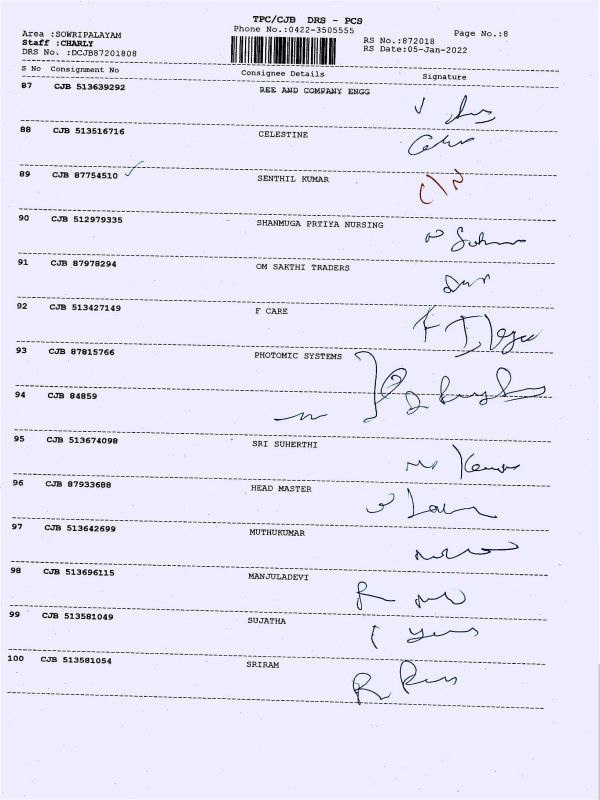 TPC/CJB DRS - PCS
Phone No.:0422-3505555
Page No.:8
Area :SOWRIPALAYAM
Staff :CHARLY
DRS No. :DCJB87201808
RS No.:872018
RS Date:05-Jan-2022
S No Consignment No Consignee Details Signature
87 CJB 513639292 REE AND COMPANY ENGG
88 CJB 513516716 CELESTINE
89 CJB 87754510 SENTHIL KUMAR
90 CJB 512979335 SHANMUGA PRTIYA NURSING
91 CJB 87978294 OM SAKTHI TRADERS
92 CJB 513427149 F CARE
93 CJB 87815766 PHOTOMIC SYSTEMS
94 CJB 84859
95 CJB 513674098 SRI SUHERTHI
96 CJB 87933688 HEAD MASTER
97 CJB 513642699 MUTHUKUMAR
98 CJB 513696115 MANJULADEVI
99 CJB 513581049 SUJATHA
100 CJB 513581054 SRIRAM